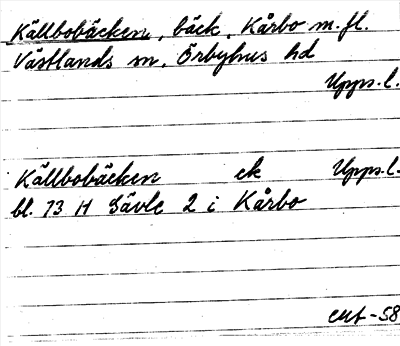 Källbobäcken, bäck, Kårbo m.fl.
Västlands sn, Örbyhus hd
Upps. l.
Källbobäcken ek Upps. l.
bl. 73 H Gävle 2 i Kårbo